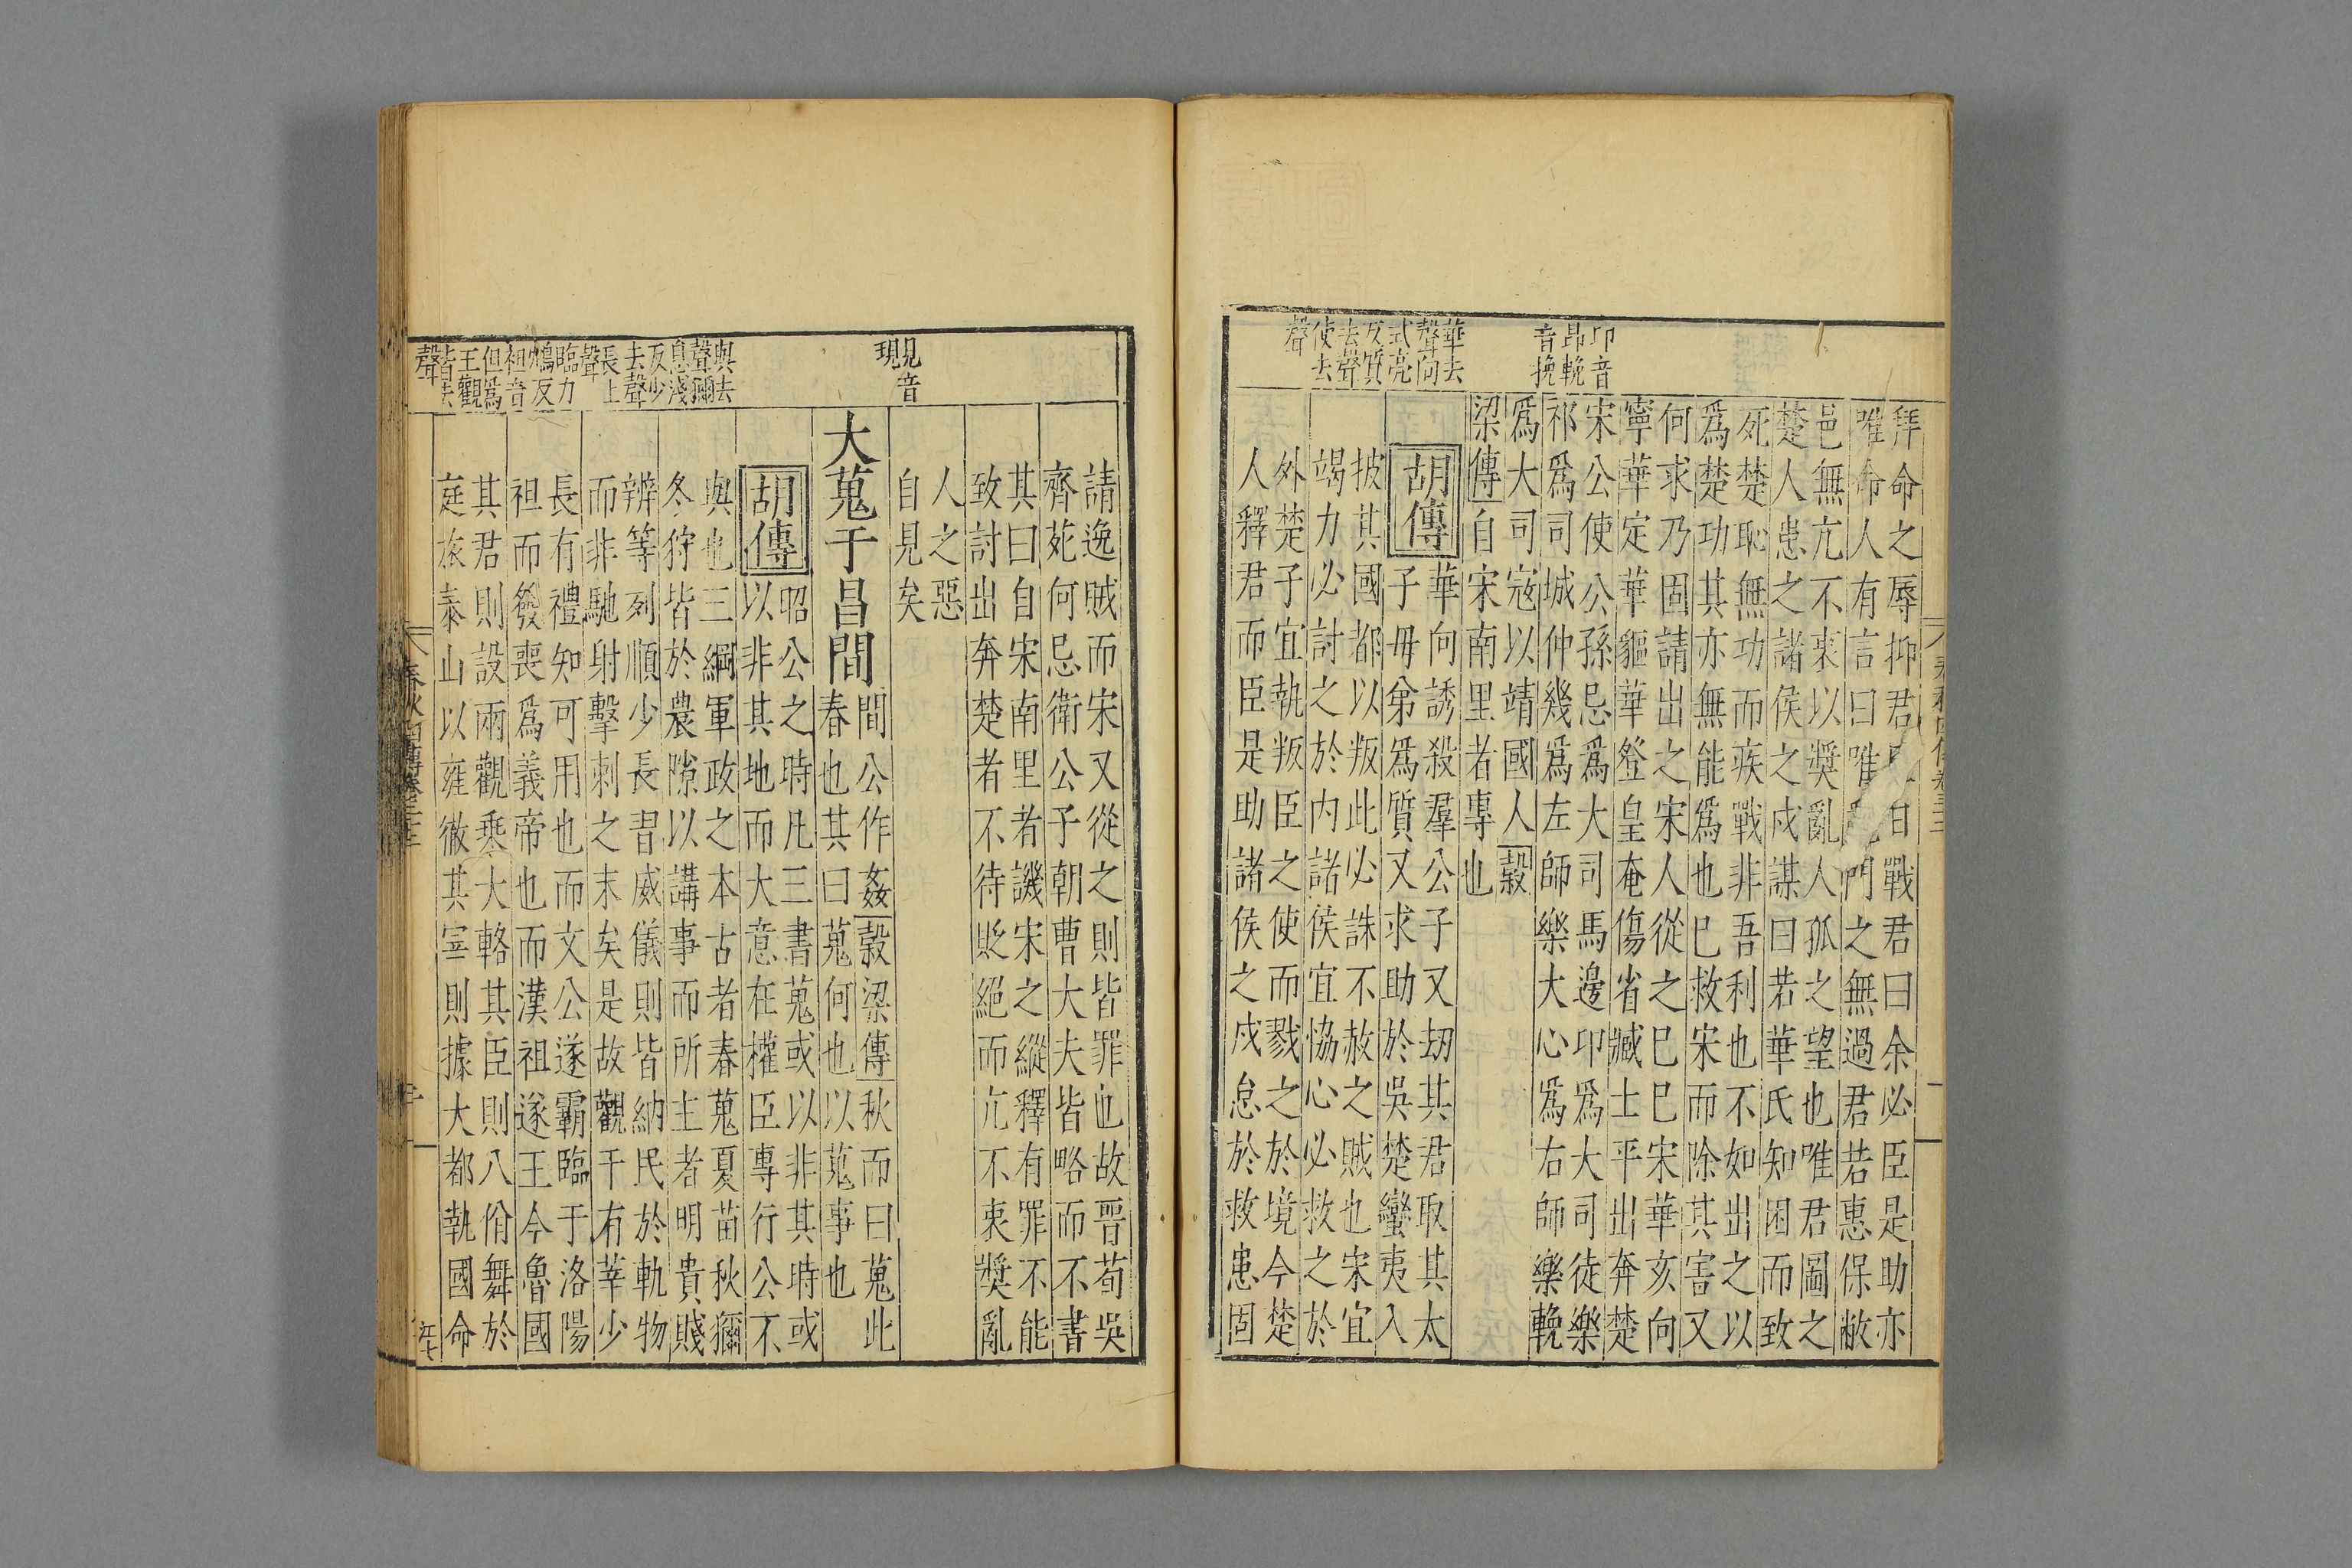 拜命之辱抑君臣日戰君曰余必臣是助亦
唯命人有言曰唯亂門之無過君若惠保敝
邑無亢不衷以奬亂人孤之望也唯君圖之
楚人患之諸侯之戍謀曰若華氏知困而致
死楚恥無功而疾戰非吾利也不如出之以
爲楚功其亦無能爲也巳救宋而除其害又
何求乃固請出之宋人從之巳巳宋華亥向
寧華定華貙華登皇奄傷省臧士平出奔楚
宋公使公孫忌爲大司馬邊卬爲大司徒樂
祁爲司城仲幾爲左師樂大心爲右師樂輓
爲大司寇以靖國人穀
梁傳自宋南里者專也
胡傳
華向誘殺羣公子又劫其君取其太
子毋弟爲質又求助於吳楚蠻夷入
披其國都以叛此必誅不赦之賊也宋宜
竭力必討之於内諸侯宜恊心必救之於
外楚子宜執叛臣之使而戮之於境今楚
人釋君而臣是助諸侯之戍怠於救患固
卬音
昂輓
音挽
華去
聲向
式亮
反質
去聲
使去
聲
請逸賊而宋又從之則皆罪也故晋荀吳
齊苑何忌衛公子朝曹大夫皆略而不書
其曰自宋南里者譏宋之縱釋有罪不能
致討出奔楚者不待貶絕而亢不衷奬亂
人之惡
自見矣
大蒐于昌間
間公作姦穀梁傳秋而曰蒐此
春也其曰蒐何也以蒐事也
胡傳
昭公之時凡三書蒐或以非其時或
以非其地而大意在權臣專行公不
與也三綱軍政之本古者春蒐夏苗秋獮
冬狩皆於農隙以講事而所主者明貴賤
辨等列順少長習威儀則皆納民於軌物
而非馳射擊刺之末矣是故觀于有莘少
長有禮知可用也而文公遂霸臨于洛陽
袒而發喪爲義帝也而漢祖遂王今魯國
其君則設兩觀乘大輅其臣則八佾舞於
庭旅泰山以雍徹其宰則據大都執國命
見音
現
與去
聲獮
息淺
反少
去聲
長上
聲
臨力
鴆反
袒音
但爲
王觀
皆去
聲
春秋四傳卷三十三